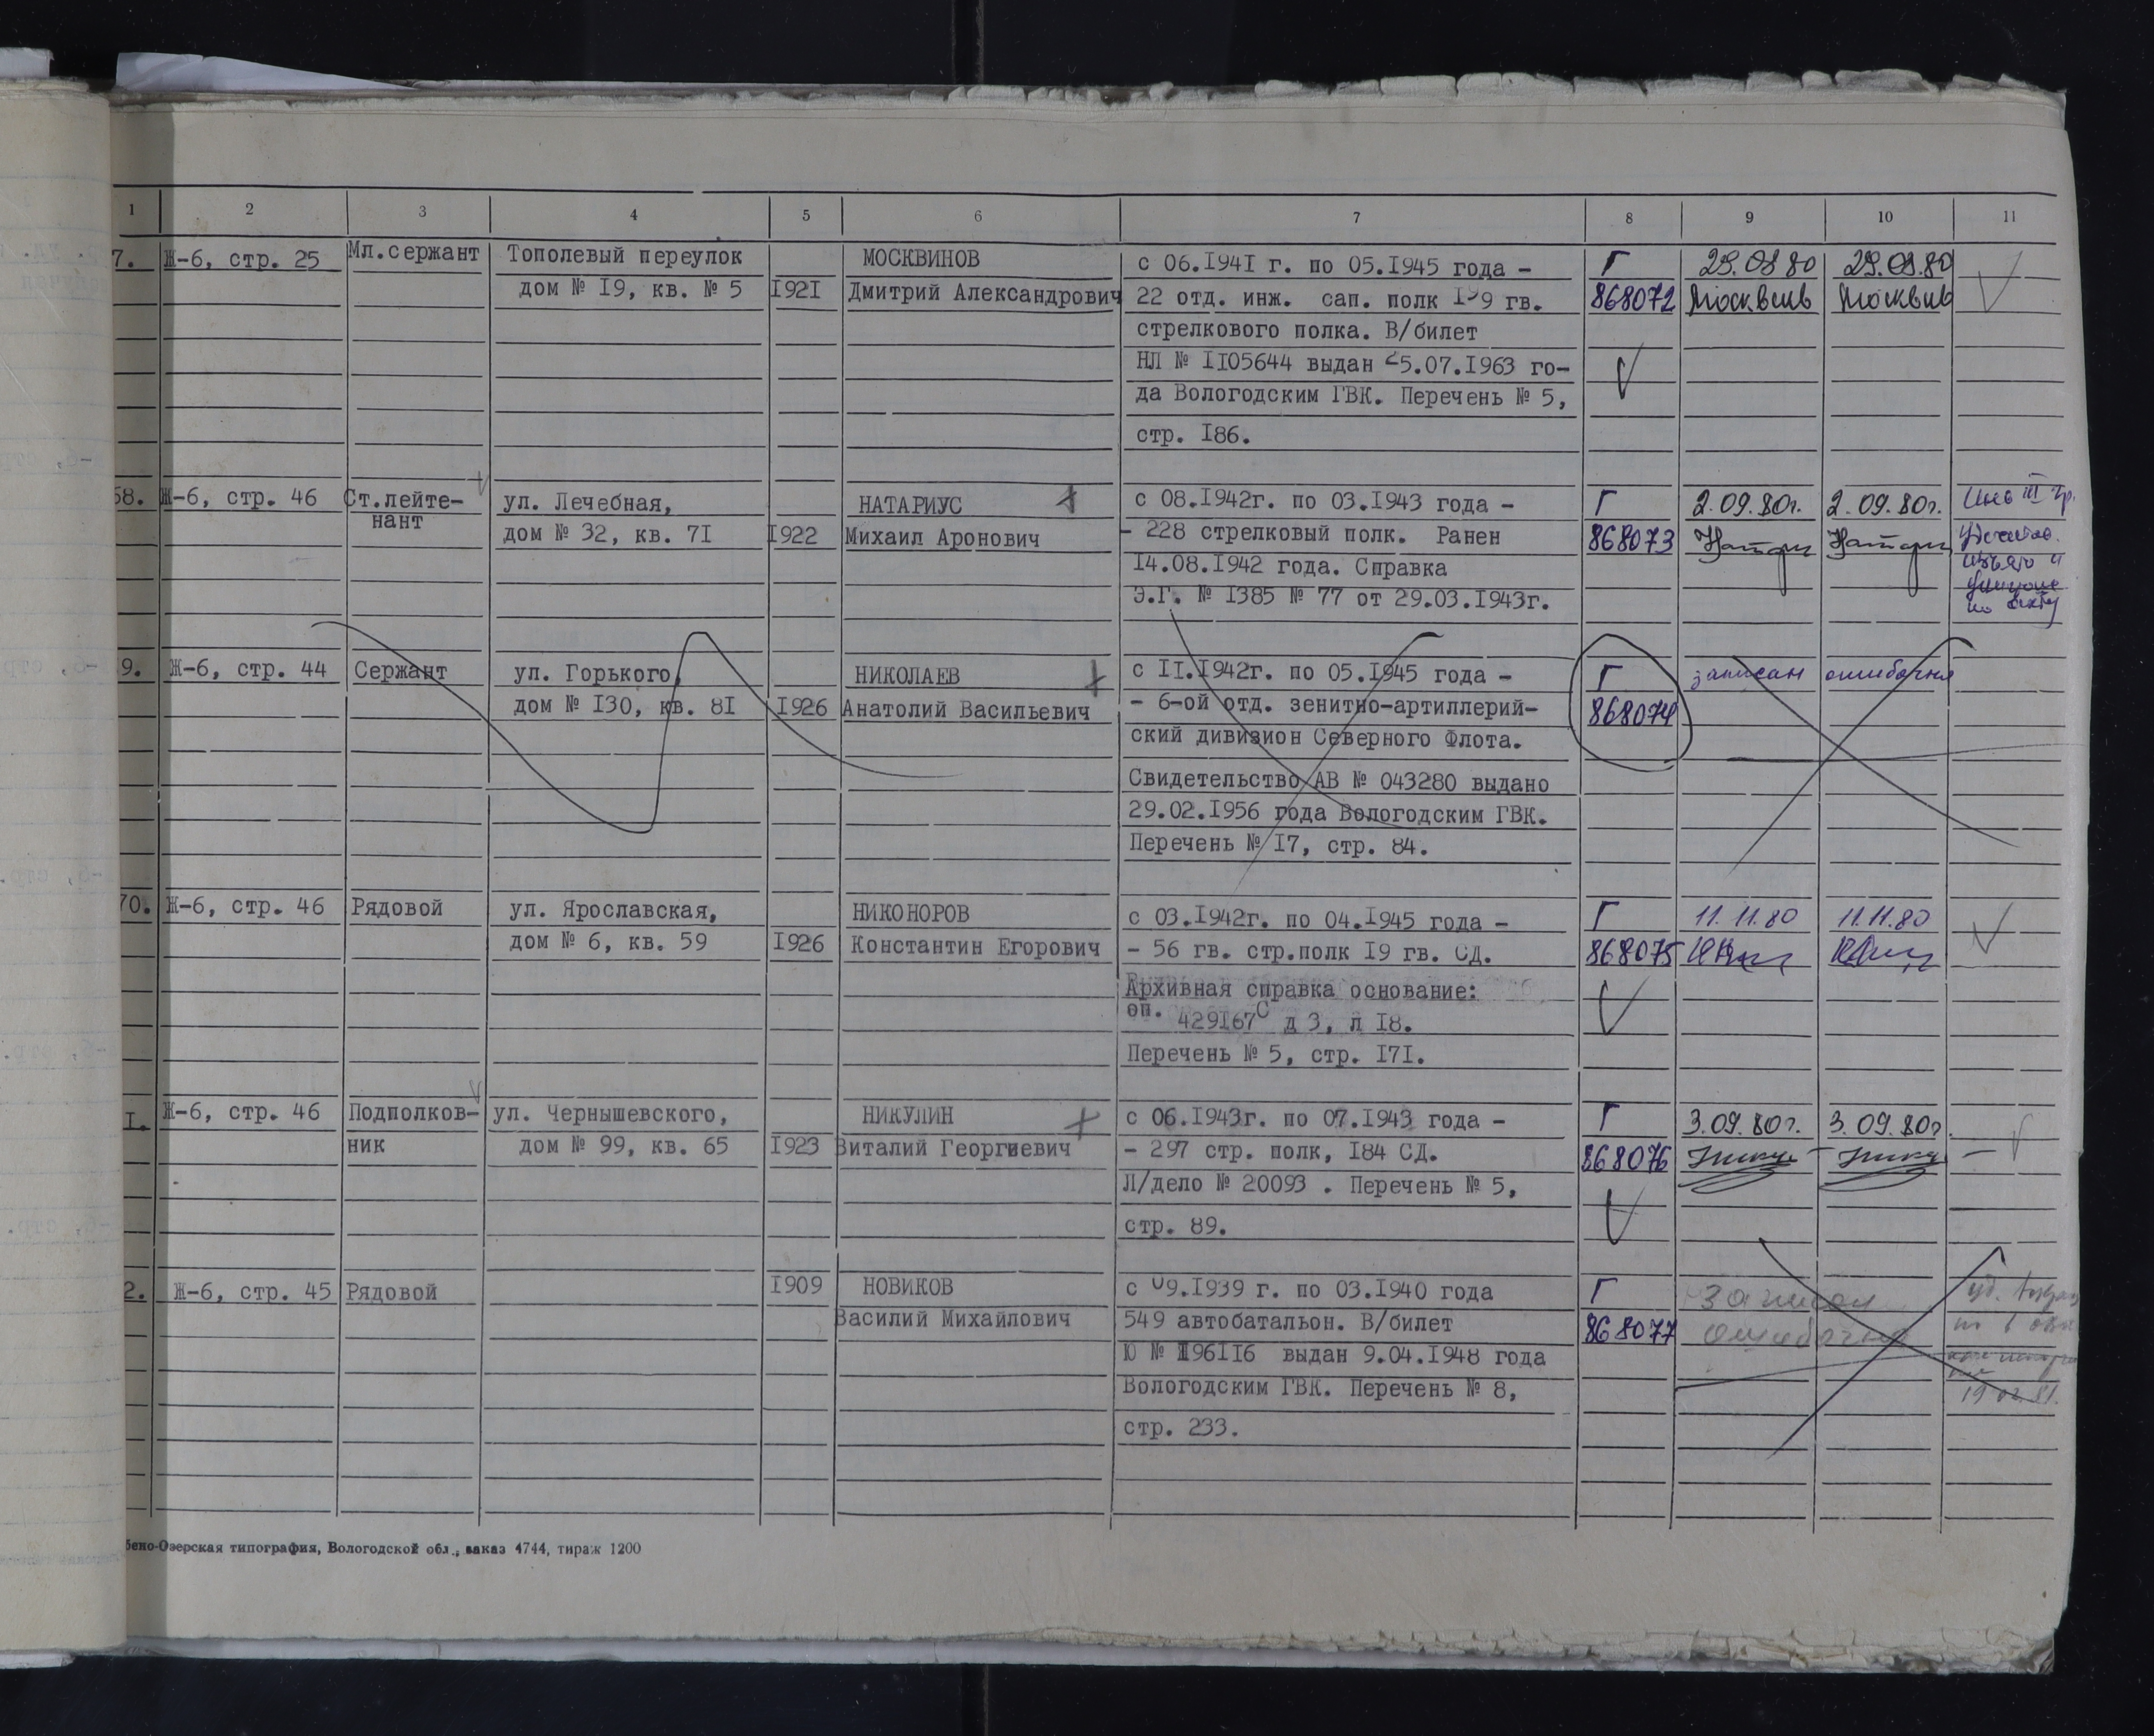 1 2 3 4 5 6 7 8 9 10 11
7. Ж-6, стр. 25 Мл.сержант Тополевый переулок МОСКВИНОВ с 06.I94I г. по 05.I945 года - Г 29.09.80
дом № I9, кв. № 5 I92I Дмитрий Александрович 22 отд. инж. сап. полк гв. 868072
стрелкового полка. В/билет
НЛ № II05644 выдан 25.07.I963 го-
да Вологодским ГВК. Перечень № 5,
стр. I86.
68. Ж-6, стр. 46 Ст.лейте- ул. Лечебная, НАТАРИУС с 08.I942г. по 03.I943 года - Г 2.09.80г. 2.09.80г.
нант дом № 32, кв. 7I I922 Михаил Аронович - 228 стрелковый полк. Ранен 868073
I4.08.I942 года. Справка
Э.Г. № I385 № 77 от 29.03.I943г.
9. Ж-6, стр. 44 Сержант ул. Горького, НИКОЛАЕВ с II.I942г. по 05.I945 года - Г записан ошибочно
дом № I30, кв. 8I I926 Анатолий Васильевич - 6-ой отд. зенитно-артиллерий- 868074
ский дивизион Северного Флота.
Свидетельство АВ № 043280 выдано
29.02.I956 года Вологодским ГВК.
Перечень № I7, стр. 84.
70. Ж-6, стр. 46 Рядовой ул. Ярославская, НИКОНОРОВ с 03.I942г. по 04.I945 года - Г 11.11.80 11.11.80
дом № 6, кв. 59 I926 Константин Егорович - 56 гв. стр.полк I9 гв. СД. 868075
Архивная справка основание:
оп. 429I67с д 3, л I8.
Перечень № 5, стр. I7I.
I. Ж-6, стр. 46 Подполков- ул. Чернышевского, НИКУЛИН с 06.I943г. по 07.I943 года - Г 3.09.80г. 3.09.80г
ник дом № 99, кв. 65 I923 Виталий Георгиевич - 297 стр. полк, I84 СД. 868076
Л/дело № 20093 . Перечень № 5,
стр. 89.
2. Ж-6, стр. 45 Рядовой I909 НОВИКОВ с 09.I939 г. по 03.I940 года Г записан
Василий Михайлович 549 автобатальон. В/билет 868077 ошибочно
Ю № выдан 9.04.I948 года
Вологодским ГВК. Перечень № 8,
стр. 233.
бено-Озерская типография, Вологодской обл., заказ 4744, тираж 1200